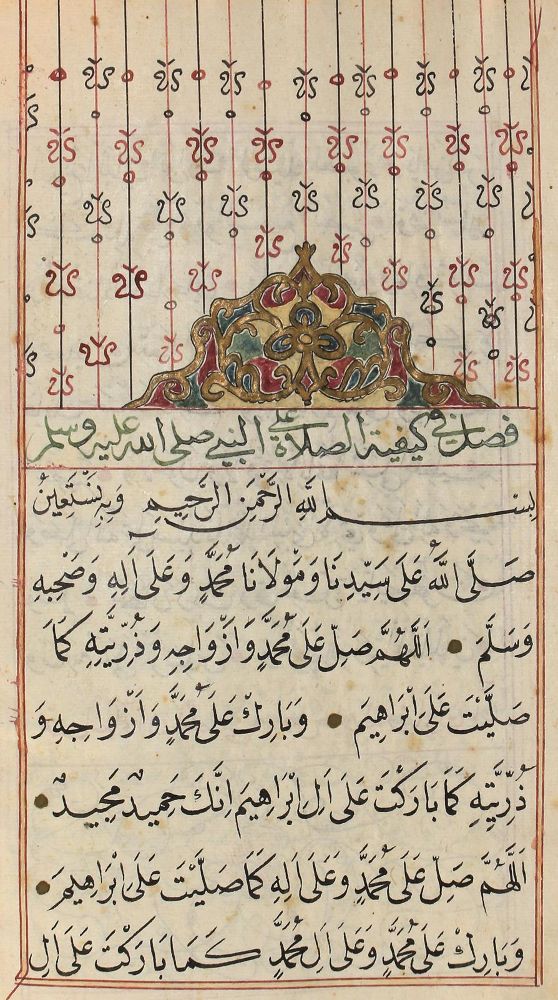 فصل في كيفية الصلاة على النبي صلى الله عليه وسلم
بِسْمِ اللَّهِ الرَّحْمَنِ الرَّحِيمِ وَبِهِ نَسْتَعِينُ
صَلَّى اللَّهُ عَلَى سَيِّدِنَا وَمَوْلَانَا مُحَمَّدٍ وَعَلَى اَلِهِ وَصَحْبِهِ
وَسَلَّمَ • اَللَّهُمَّ صَلِّ عَلَى مُحَمَّدٍ وَاَزْوَاجِهِ وَذُرِّيَّتِهِ كَمَا
صَلَّيْتَ عَلَى اِبْرَاهِيمَ • وَبَارِكْ عَلَى مُحَمَّدٍ وَاَزْوَاجِهِ وَ
ذُرِّيَّتِهِ كَمَا بَارَكْتَ عَلَى اَلِ اِبْرَاهِيمَ اِنَّكَ حَمِيدٌ مَجِيدٌ •
اَللَّهُمَّ صَلِّ عَلَى مُحَمَّدٍ وَعَلَى اَلِهِ كَمَا صَلَّيْتَ عَلَى اِبْرَاهِيمَ •
وَبَارِكْ عَلَى مُحَمَّدٍ وَعَلَى اَلِ مُحَمَّدٍ كَمَا بَارَكْتَ عَلَى اَلِ